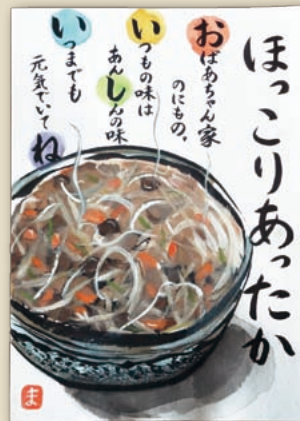 ほっこりあったか
おばあちゃん家
のにもの。
いつもの味は
あんしんの味
いつまでも
元気でいてね
ま